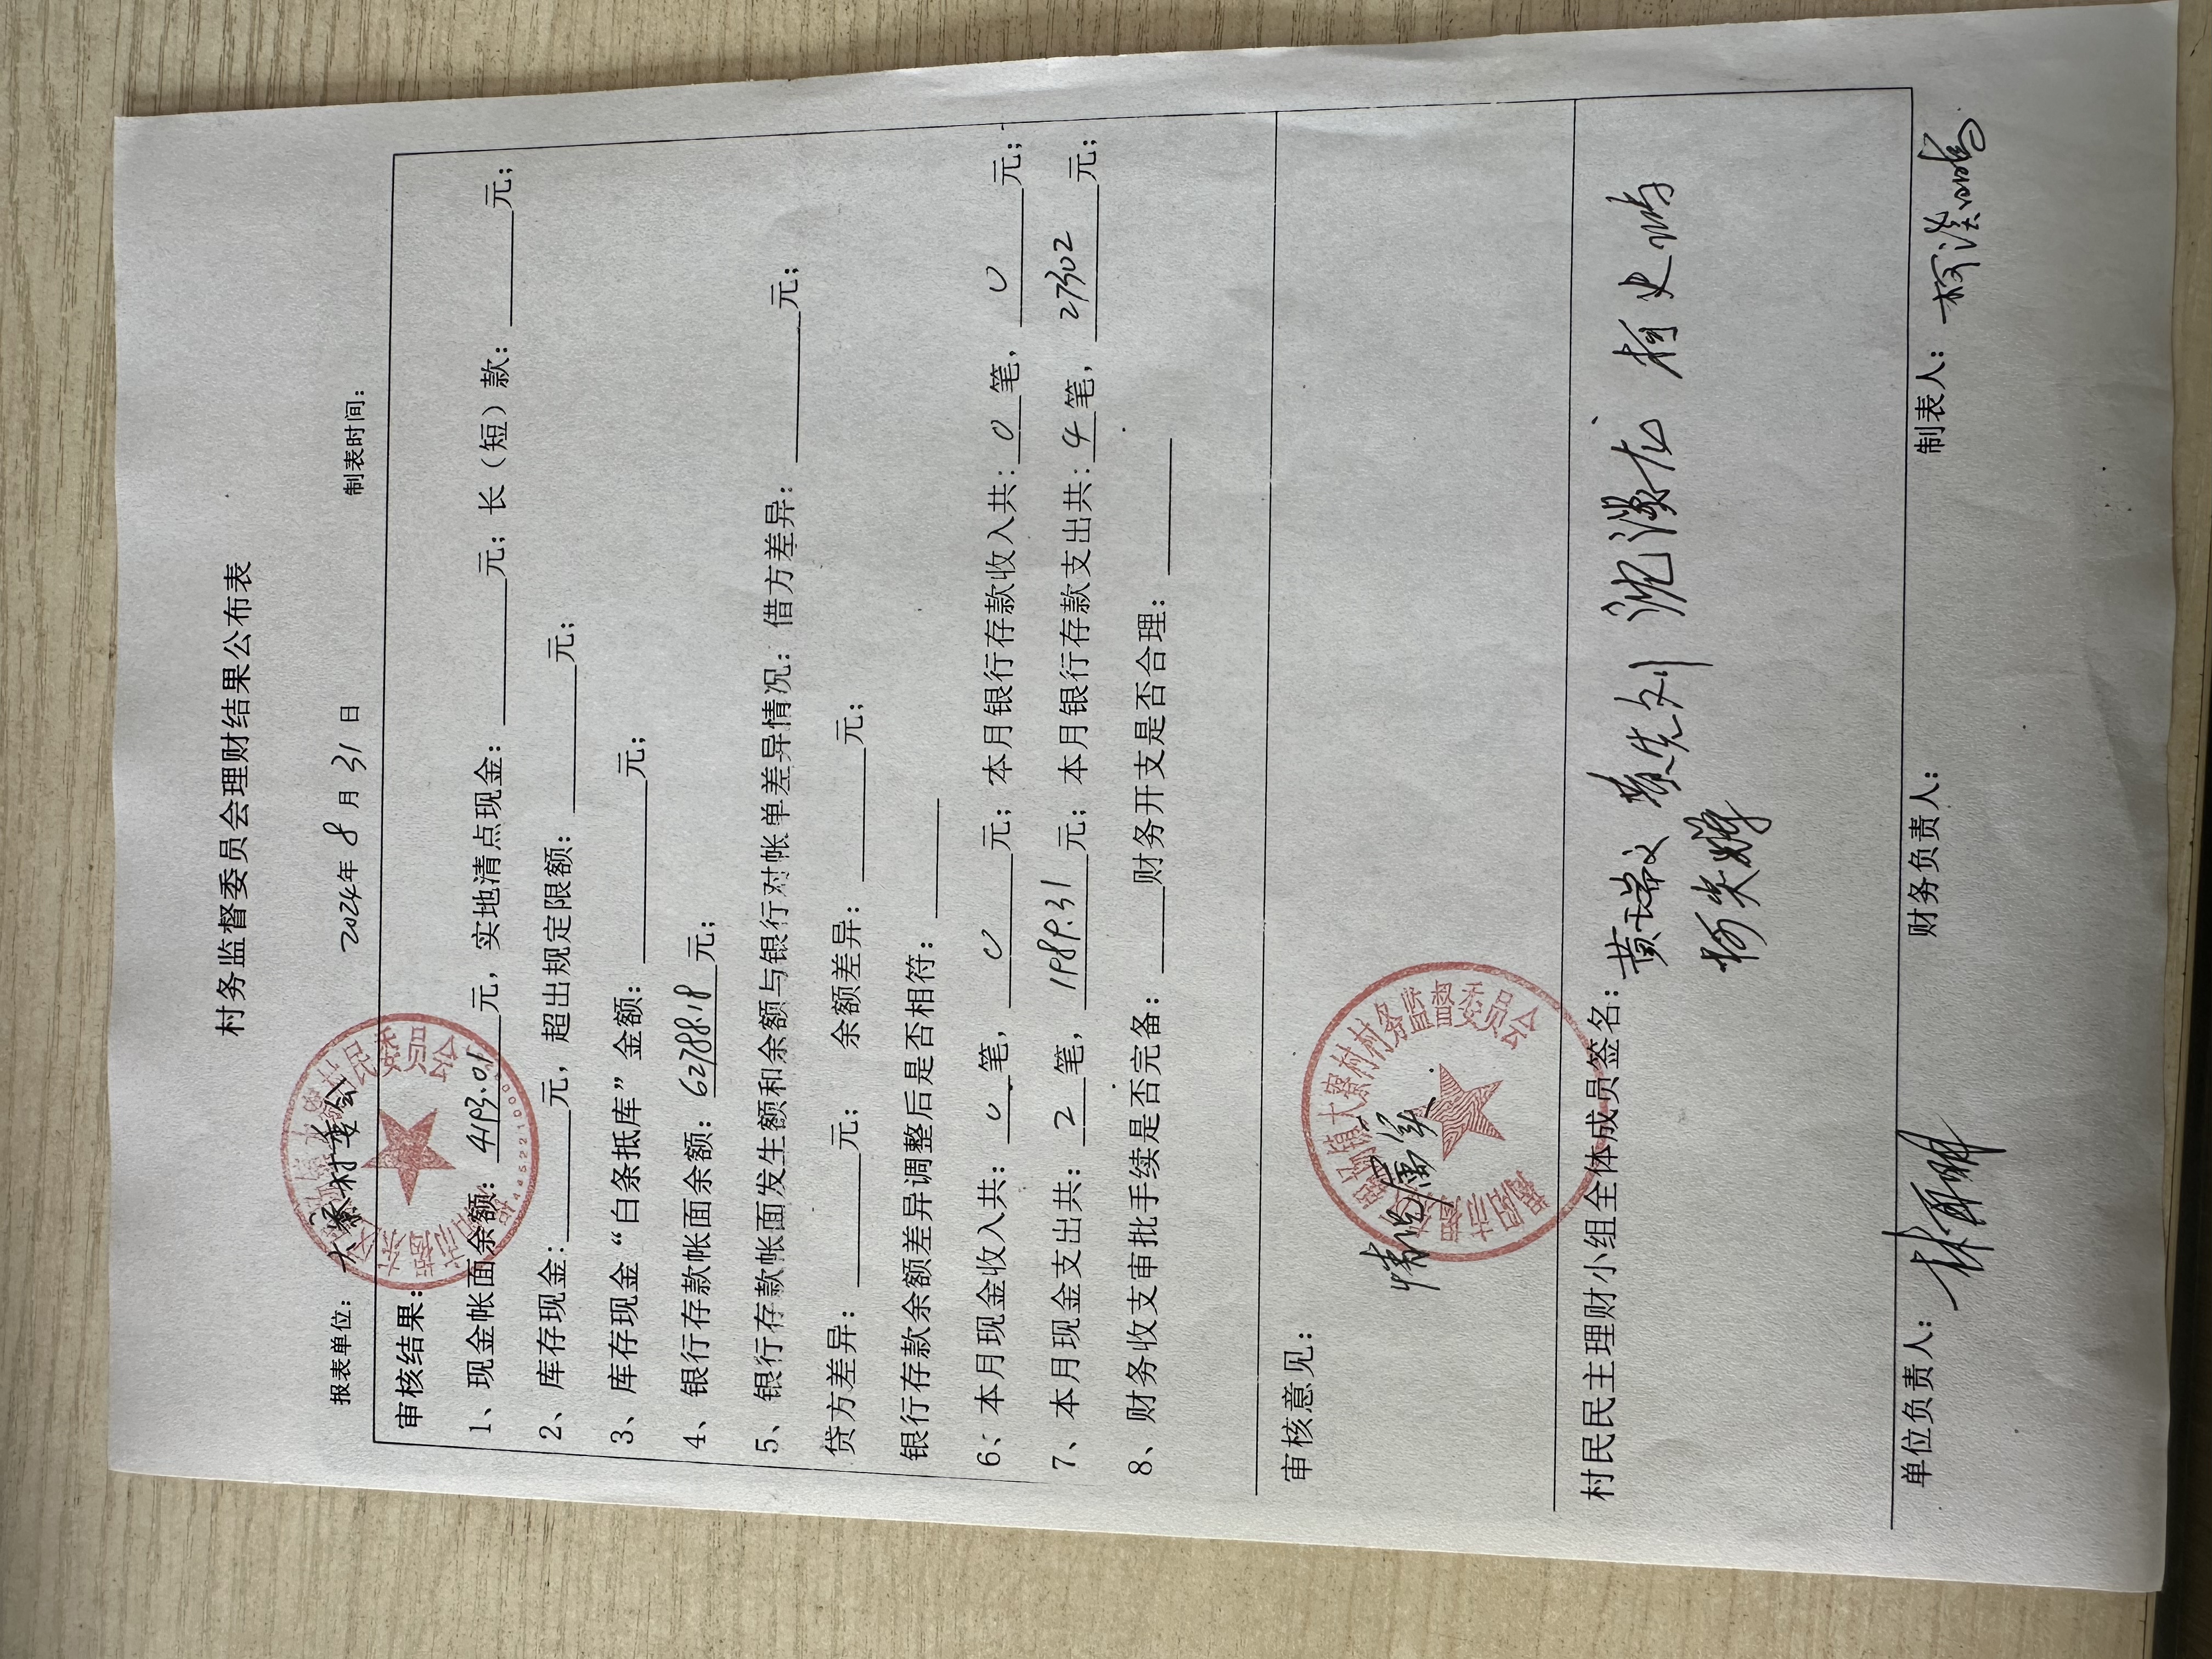 村务监督委员会理财结果公布表
报表单位：大寮村委会 2024年8月31日 制表时间：
审核结果：
1、现金帐面余额：4193.01元，实地清点现金：元；长（短）款：元；
2、库存现金：元，超出规定限额：元；
3、库存现金“白条抵库”金额：元；
4、银行存款帐面余额：62788.18元；
5、银行存款帐面发生额和余额与银行对帐单差异情况：借方差异：元；
贷方差异：元；余额差异：元；
银行存款余额差异调整后是否相符：
6、本月现金收入共：0笔，0元；本月银行存款收入共：0笔，0元；
7、本月现金支出共：2笔，1989.31元；本月银行存款支出共：4笔，27302元；
8、财务收支审批手续是否完备：财务开支是否合理：
审核意见：
情况属实
大寮村村务监督委员会
村民民主理财小组全体成员签名：
单位负责人： 财务负责人： 制表人：